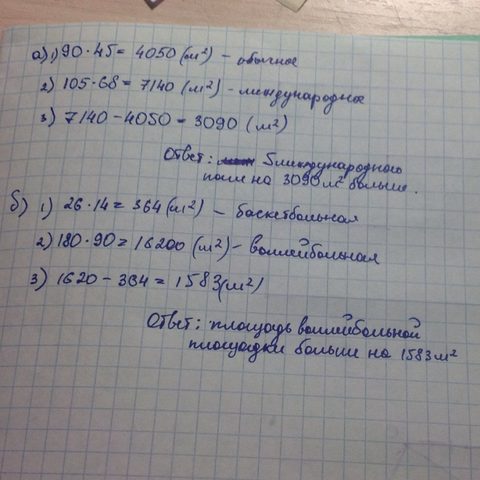 а) 1) 90·45 = 4050 (м²) – обычное
2) 105·68 = 7140 (м²) – международное
3) 7140 – 4050 = 3090 (м²)
Ответ: Sмеждународного
поля на 3090 м² больше.
б) 1) 26·14 = 364 (м²) – баскетбольная
2) 180·90 = 16200 (м²) – воллейбольная
3) 1620 – 364 = 1583 (м²)
Ответ: площадь воллейбольной
площадки больше на 1583 м²